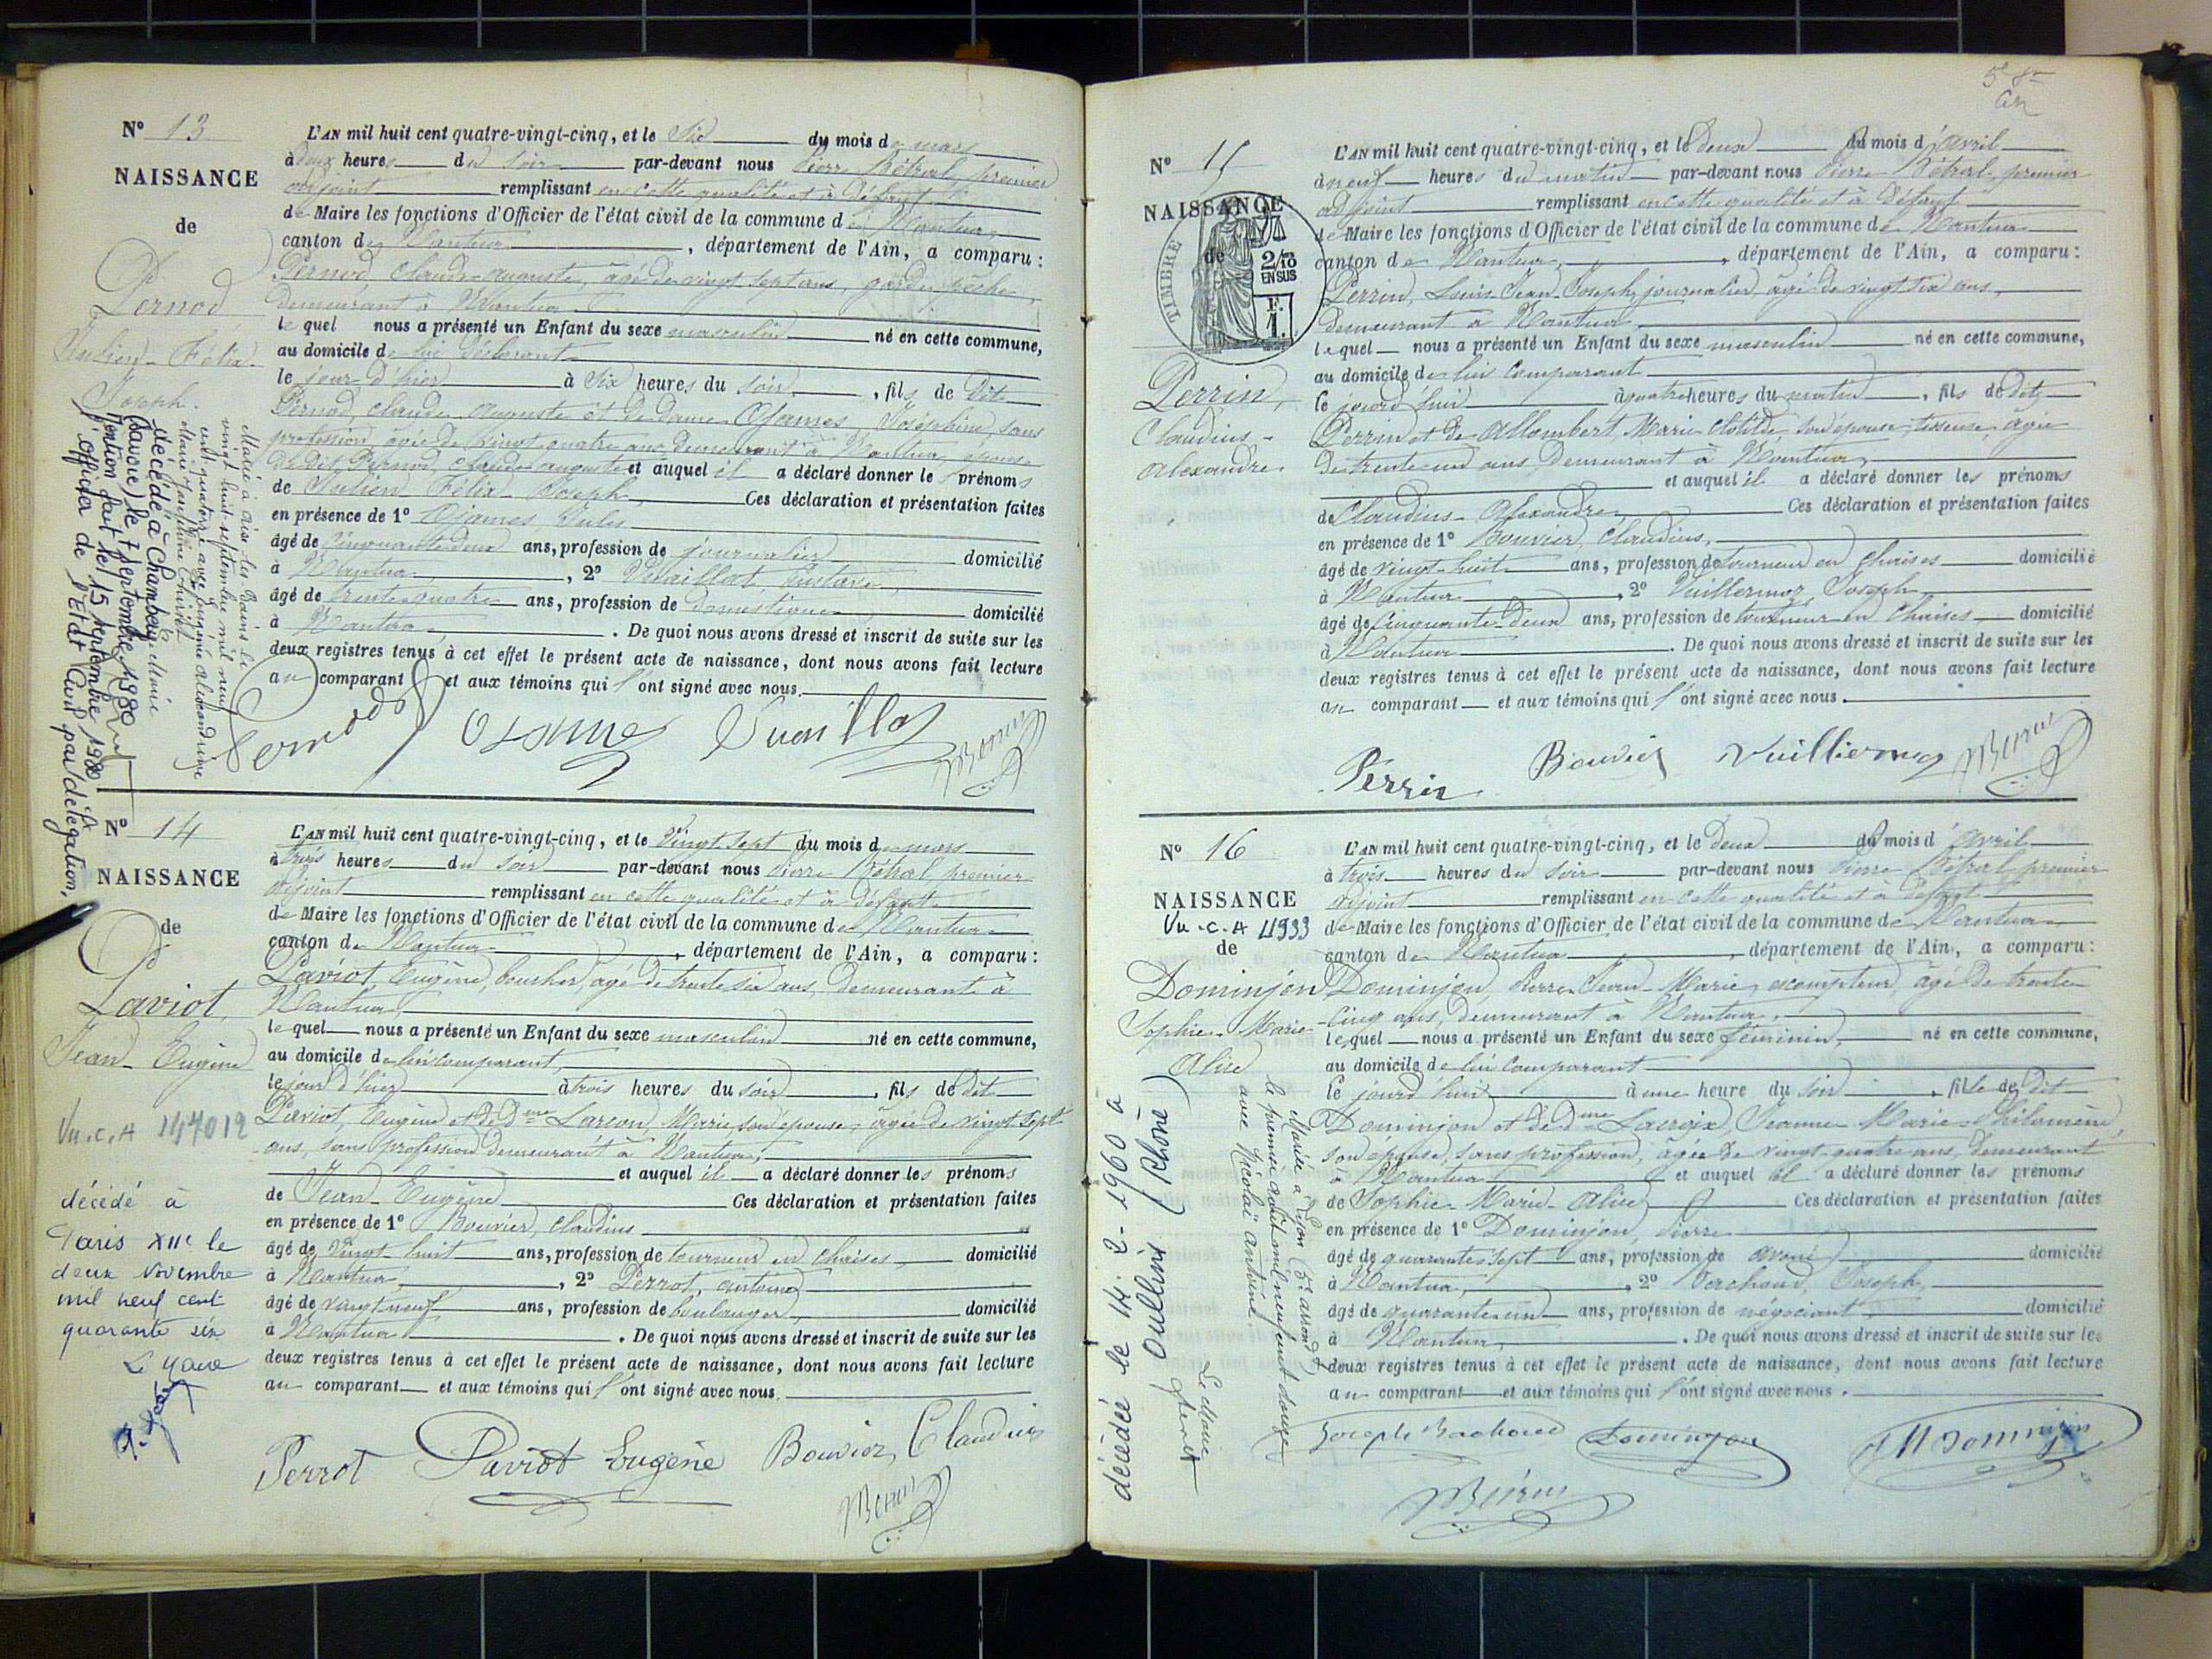 N° 13
NAISSANCE
de
Pernod
Julien-Félix
Joseph.
L'AN mil huit cent quatre-vingt-cinq, et le Six du mois de mars
à deux heures du soir par-devant nous Pierre Bétral premier
adjoint remplissant en cette qualité et à défaut
de Maire les fonctions d'Officier de l'état civil de la commune de Nantua
canton de Nantua, département de l'Ain, a comparu :
Pernod, Claude-Auguste, âgé de vingt sept ans, garde pêche,
demeurant à Nantua
lequel nous a présenté un Enfant du sexe masculin né en cette commune,
au domicile de lui déclarant
le jour d'hier à Six heures du soir, fils de dit
Pernod, Claude Auguste et de dame Ojames, Joséphine, sans
profession, âgée de vingt quatre ans demeurant à Nantua, épouse
du dit Pernod, Claude auguste et auquel il a déclaré donner les prénoms
de Julien Félix Joseph Ces déclaration et présentation faites
en présence de 1° Ojames Jules
âgé de Cinquante deux ans, profession de journalier domicilié
à Nantua, 2° Vuaillat Gustave
âgé de trente quatre ans, profession de domestique domicilié
à Nantua. De quoi nous avons dressé et inscrit de suite sur les
deux registres tenus à cet effet le présent acte de naissance, dont nous avons fait lecture
au comparant et aux témoins qui l'ont signé avec nous.
Marié à Aix-les-Bains le
vingt huit septembre mil neuf
cent quatorze avec Eugénie Alexandrine
Marie Joséphine
décédé à Chambéry
(Savoie) le 7 septembre 1980
Mention faite le 15 septembre 1980
l'officier de l'Etat Civil par délégation,
Pernod Ojames Vuaillat
N° 14
NAISSANCE
de
Paviot
Jean-Eugène
Vu.C.A 147012
décédé à
Paris XIIe le
deux Novembre
mil neuf cent
quarante six
Le Maire
L'AN mil huit cent quatre-vingt-cinq, et le Vingt Sept du mois de mars
à trois heures du soir par-devant nous Pierre Bétral premier
adjoint remplissant en cette qualité et à défaut
de Maire les fonctions d'Officier de l'état civil de la commune de Nantua
canton de Nantua, département de l'Ain, a comparu :
Paviot, Eugène, boucher, âgé de trente six ans, demeurant à
Nantua,
lequel nous a présenté un Enfant du sexe masculin né en cette commune,
au domicile de lui comparant,
le jour d'hier à trois heures du soir, fils de dit
Paviot, Eugène et de Dme Larcon, Marie, son épouse, âgée de vingt sept
ans, sans profession demeurant à Nantua,
et auquel il a déclaré donner les prénoms
de Jean-Eugène Ces déclaration et présentation faites
en présence de 1° Bouvier, Claudius
âgé de Vingt huit ans, profession de tourneur en chaises domicilié
à Nantua, 2° Perrot, antoine
âgé de vingt neuf ans, profession de boulanger domicilié
à Nantua. De quoi nous avons dressé et inscrit de suite sur les
deux registres tenus à cet effet le présent acte de naissance, dont nous avons fait lecture
au comparant et aux témoins qui l'ont signé avec nous.
Perrot Paviot Eugène Bouvier, Claudius
N° 15
NAISSANCE
de
TIMBRE
2/10
EN SUS
F.
1.
Perrin,
Claudius-
Alexandre
L'AN mil huit cent quatre-vingt-cinq, et le deux du mois d'avril
à neuf heures du matin par-devant nous Pierre Bétral, premier
adjoint remplissant en cette qualité et à défaut
de Maire les fonctions d'Officier de l'état civil de la commune de Nantua
canton de Nantua, département de l'Ain, a comparu :
Perrin, Louis-Jean-Joseph, journalier, âgé de vingt six ans,
demeurant à Nantua
lequel nous a présenté un Enfant du sexe masculin né en cette commune,
au domicile de lui Comparant
le jourd'hui à quatre heures du matin, fils de dit
Perrin et de Allombert, Marie Clotilde son épouse, tisseuse, âgée
de trente-un ans, demeurant à Nantua,
et auquel il a déclaré donner les prénoms
de Claudius-Alexandre Ces déclaration et présentation faites
en présence de 1° Bouvier, Claudius,
âgé de vingt-huit ans, profession de tourneur en Chaises domicilié
à Nantua, 2° Vuillermoz, Joseph
âgé de Cinquante-deux ans, profession de tourneur en Chaises domicilié
à Nantua. De quoi nous avons dressé et inscrit de suite sur les
deux registres tenus à cet effet le présent acte de naissance, dont nous avons fait lecture
au comparant et aux témoins qui l'ont signé avec nous.
Perrin Bouvier Vuilliermoz
N° 16
NAISSANCE
Vu.C.A 11933
de
Dominjon
Sophie-Marie
Alice
L'AN mil huit cent quatre-vingt-cinq, et le deux du mois d'avril
à trois heures du soir par-devant nous Pierre Bétral premier
adjoint remplissant en cette qualité et à défaut
de Maire les fonctions d'Officier de l'état civil de la commune de Nantua
canton de Nantua, département de l'Ain, a comparu :
Dominjon, Pierre-Jean-Marie, escompteur, âgé de trente
Cinq ans, demeurant à Nantua,
lequel nous a présenté un Enfant du sexe féminin, né en cette commune,
au domicile de lui Comparant
le jourd'hui à une heure du soir, fille de dit
Dominjon et de Dme Lacroix, Jeanne-Marie-Philomène,
son épouse, sans profession, âgée de vingt-quatre ans, demeurant
à Nantua et auquel il a déclaré donner les prénoms
de Sophie-Marie-Alice Ces déclaration et présentation faites
en présence de 1° Dominjon, Pierre
âgé de quarante-sept ans, profession de avoué domicilié
à Nantua, 2° Bachoud, Joseph,
âgé de quarante-un ans, profession de négociant domicilié
à Nantua. De quoi nous avons dressé et inscrit de suite sur les
deux registres tenus à cet effet le présent acte de naissance, dont nous avons fait lecture
au comparant et aux témoins qui l'ont signé avec nous.
Mariée à Lyon (5e arrondt)
le premier août mil neuf cent douze
avec Nicolaï antoine.
Le Maire
décédée le 14-2-1960 à
Oullins (Rhône)
Joseph Bachoud Dominjon Dominjon